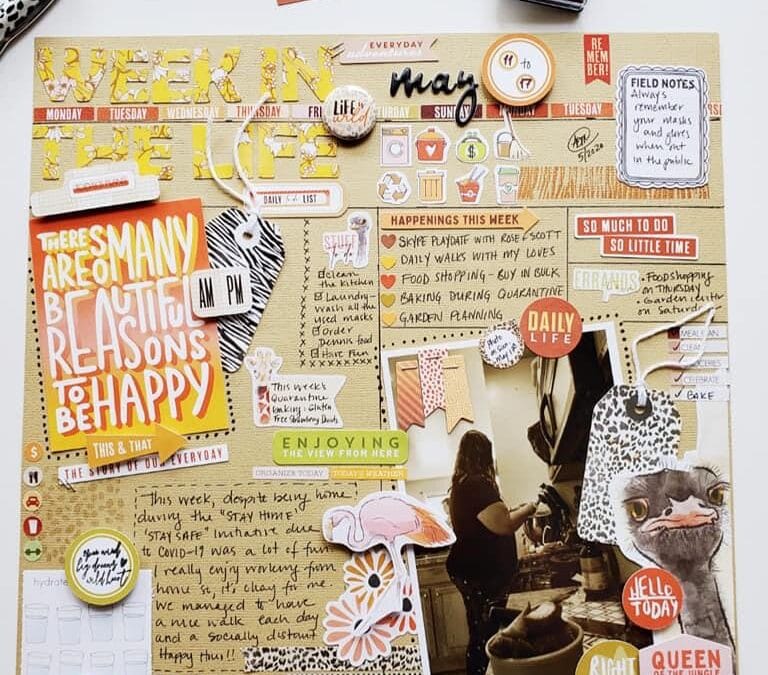 EVERYDAY
adventures
WEEK IN
THE LIFE
MONDAY TUESDAY WEDNESDAY THURSDAY FRI
TURDAY SUN MONDAY TUESDAY
LIFE in the wild
may
11 to 17
RE
MEM
BER!
5/2020
FIELD NOTES
Always
remember
your masks
and gloves
when out
in the public
DAILY to do LIST
THERE'S
SO MANY
ARE
BEAUTIFUL
REASONS
TO
BE HAPPY
AM PM
STUFF
to do
clean
the kitchen
Laundry-
wash all the
used masks
Order
Dennis food
Have Fun
HAPPENINGS THIS WEEK
SKYPE PLAYDATE WITH ROSE & SCOTT
DAILY WALKS WITH MY LOVES
FOOD SHOPPING - BUY IN BULK
BAKING DURING QUARANTINE
GARDEN PLANNING
SO MUCH TO DO
SO LITTLE TIME
ERRANDS
• Food shopping
on THURSDAY
• Garden center
on Saturday
CLEAN
CELEBRATE
BAKE
DAILY
LIFE
This week's
Quarantine
baking: Gluten
Free Strawberry Donuts
THIS & THAT
THE STORY OF OUR EVERYDAY
ENJOYING
THE VIEW FROM HERE
ORGANIZER TODAY TODAY'S WEATHER
This week, despite being home
during the "STAY HOME!
"STAY SAFE" Initiative due
to COVID-19 was a lot of fun.
I really enjoy working from
home so, it's okay for me.
We managed to have
a nice walk each day
and a socially distant
Happy Hour!!
hydrate
HELLO
TODAY
RIGHT
QUEEN
OF THE JUNGLE